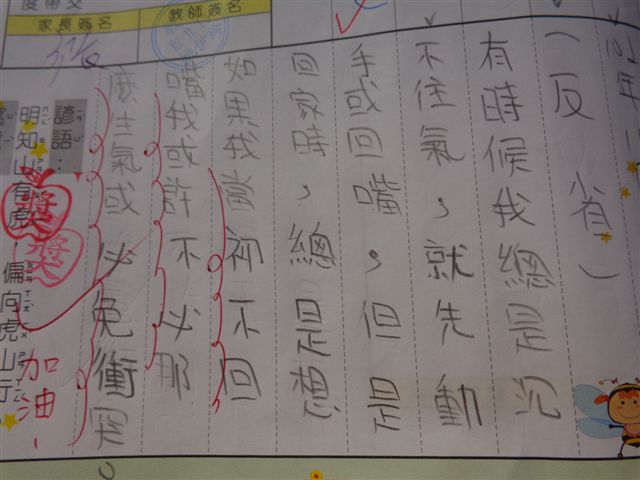 家長簽名
教師簽名
102年
(反省)
有時候我總是沉
不住氣,就先動
手或回嘴,但是
回家時,總是想
如果我當初不回
嘴我或許不必那
麼生氣或必免衝突。
諺語:
明知山有虎,偏向虎山行
獎
獎
加油!